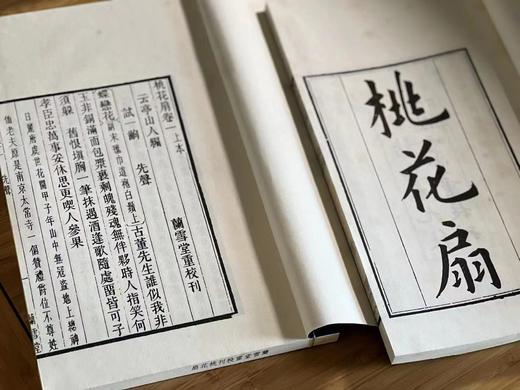 桃花扇
桃花扇卷一上本
蘭雪堂重校刊
云亭山人編
試一齣 先聲
蝶戀花 副末氈巾道袍白鬚上 古董先生誰似我非
玉非銅滿面包漿裹剩魄殘魂無伴夥時人指笑何
須躲 舊恨塡胸一筆抹遇酒逢歌隨處畱皆可子
孝臣忠萬事妥休思更喫人參果
日麗唐虞世花開甲子年山中無冦盜地上總神
仙老夫原是南京太常寺一個贊禮爵位不尊姓
蘭雪堂
蘭雪堂重校刊桃花扇